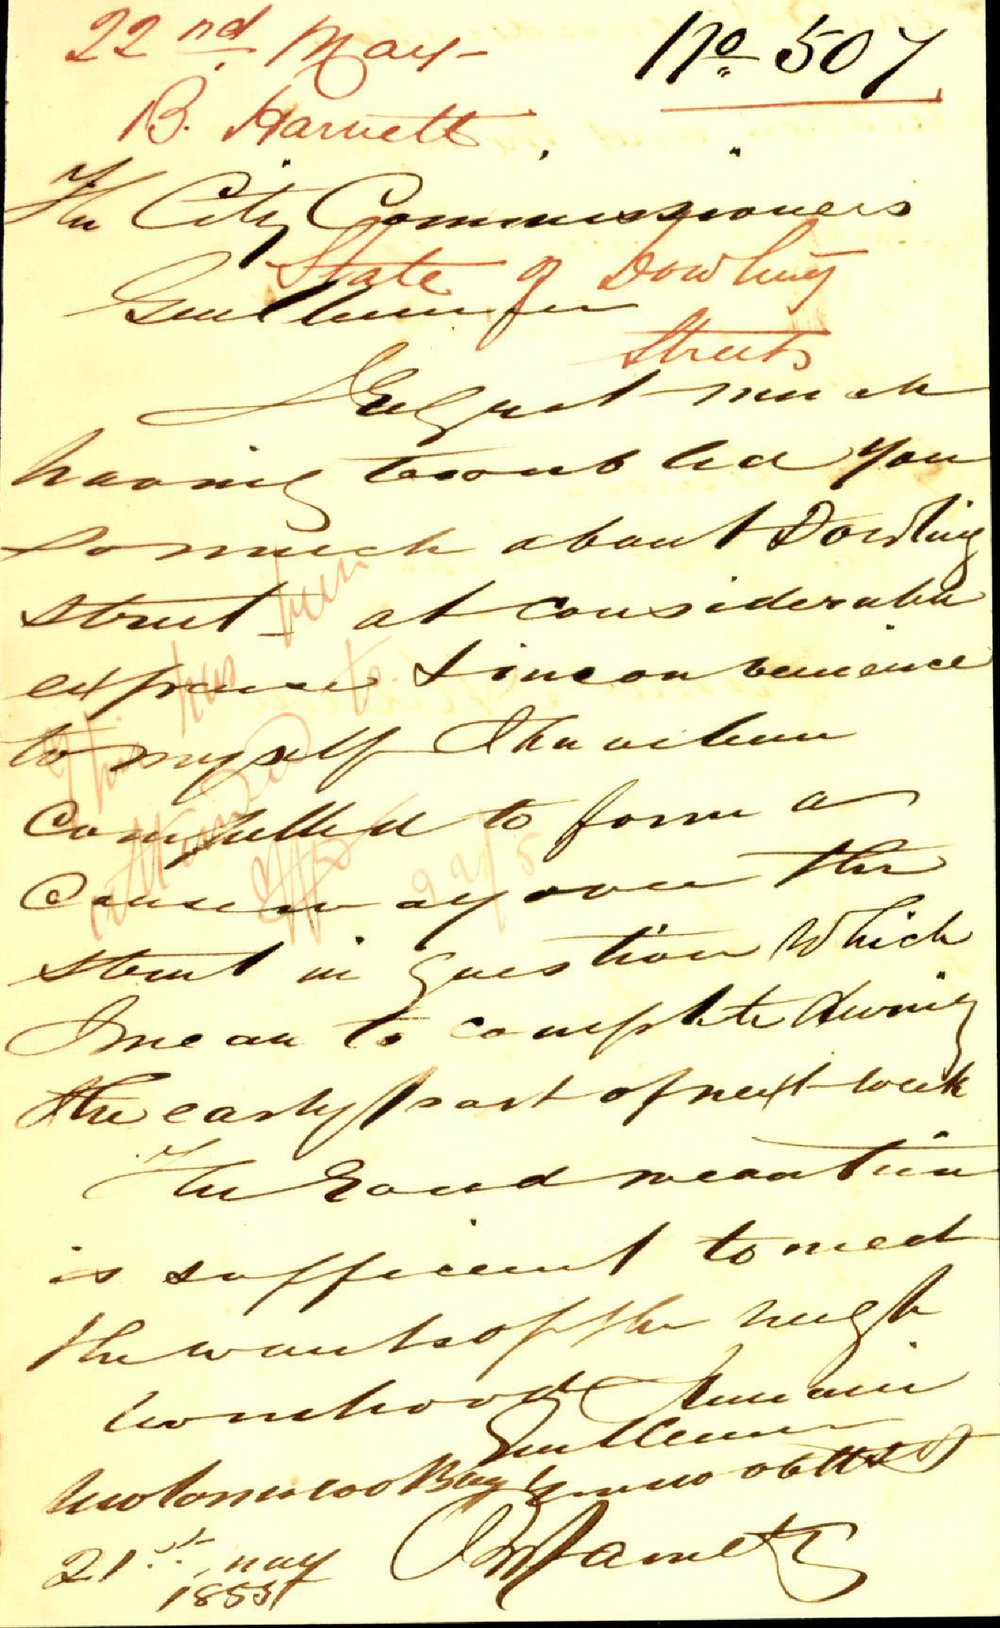 22nd May
No 507
B. Harnett
The City Commissioners
State of Dowling
Gentlemen
Street
I Regret much
having troubled you
so much about Dowling
street at considerable
expense & inconvenience
to myself I have been
Compelled to form a
Causeway over the
street in question which
I mean to complete during
the early part of next week
The Road meantime
is sufficient to meet
the wants of the neigh
bourhood I remain
Gentlemen
Woolomooloo Bay your obt st
B Harnett
21st. May
1855
This has been
attended to